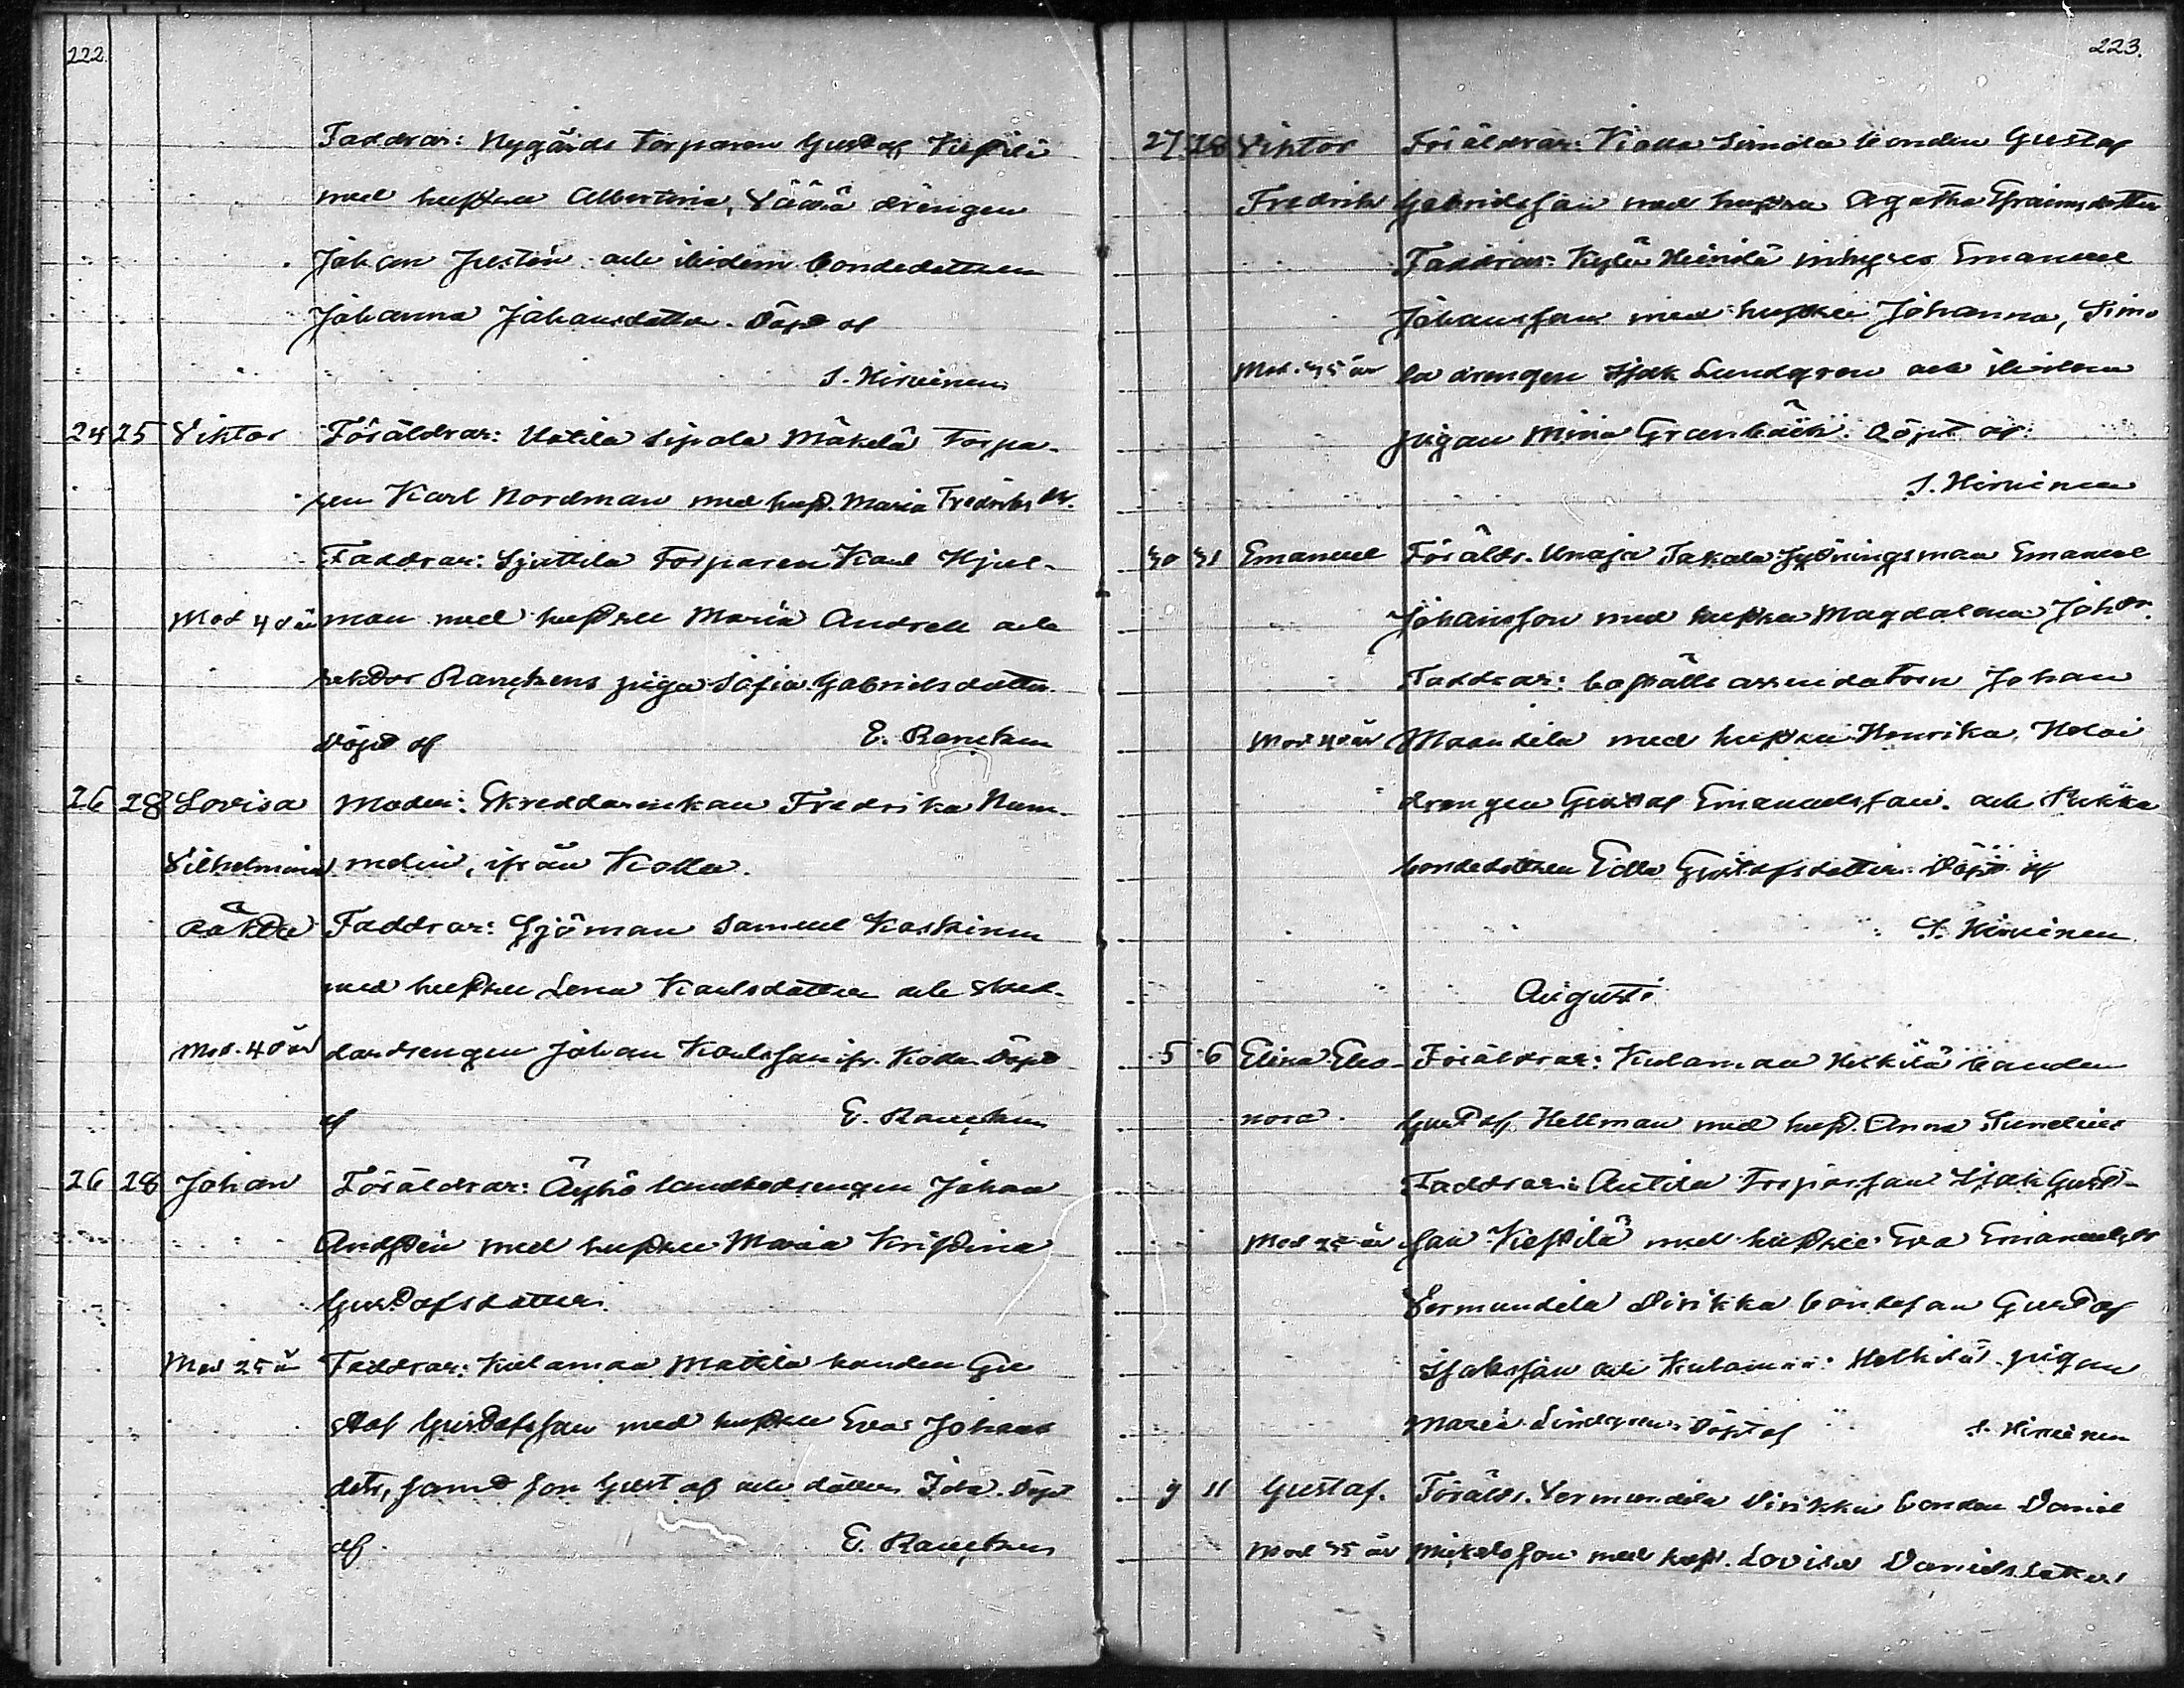 222.
Faddrar: Nygårds Torparen Gustaf
med hustru Albertina, drängen
Johan Justén och ibidem bondedottren
Johanna Johansdotter. Döpt af
S. Hirvinen
24 25 Viktor Föräldrar: Uotila Sipola Mäkelä Torpa-
ren Karl Nordman med hust. Maria Fredriks dr.
Faddrar: Torparen Karl Hjel-
Mod 40 år man med hustru Maria Andrell och
rektor Ranckens piga Sofia Gabrielsdotter.
Döpt af E. Rancken
26 28 Lovisa Modern: Skreddarenkan Fredrika Num-
Vilhelmina melin, ifrån Kolla.
oäkta Faddrar: Sjöman Samuel Koskinen
med hustru Lena Karlsdotter och skred-
Mod. 40 år dardrengen Johan Karlsson ifr. Kolla Döpt
af E. Rancken
26 28 Johan Föräldrar: Äyhö landbodrengen Johan
Andstén med hustru Maria Kristina
Gustafsdotter.
Mod 25 år Faddrar: Kulamaa Mattila bonden Gu
staf Gustafsson med hustru Eva Johans
dotr, samt son Gustaf och dotter Ida. Döpt
af E. Rancken
223.
27 28 Viktor Föräldrar: Kolla Simola bonden Gustaf
Fredrik Gabrielsson med hustru Agatha Efraimsdotter
Faddrar: Kylä Heinilä inhyses Emanuel
Johansson med hustru Johanna, Simo
Mod. 35 år la drengen Isak Lundgren och ibidem
pigan Mina Granbäck. Döpt af
S. Hirvinen
30 31 Emanuel Föräldr. Unaja Takala Emanuel
Johansson med hustru Magdalena Joh dr.
Faddrar: boställs arrendatorn Johan
Mod 40 år med hustru Henrika,
drengen Gustaf Emanuelsson och
bondedottren Edla Gustafsdotter. Döpt af
S. Hirvinen
Augusti
5 6 Elina Eleo- Föräldrar: Kulamaa Heikilä bonden
nora. Gustaf Hellman med hust. Anna Sundell
Faddrar: Antila Torparson Isak Gust-
Mod 25 år son Kestilä med hustru Eva Emanuels dr
Vermundila Sirikka bondeson Gustaf
Isaksson och Kulamaa Heikilä pigan
Maria Lindgren. Döpt af S. Hirvinen
9 11 Gustaf. Föräldr. Vermundila Sirikka bonden Daniel
Mod 35 år Mikelsson med hust. Lovisa Danielsdotter